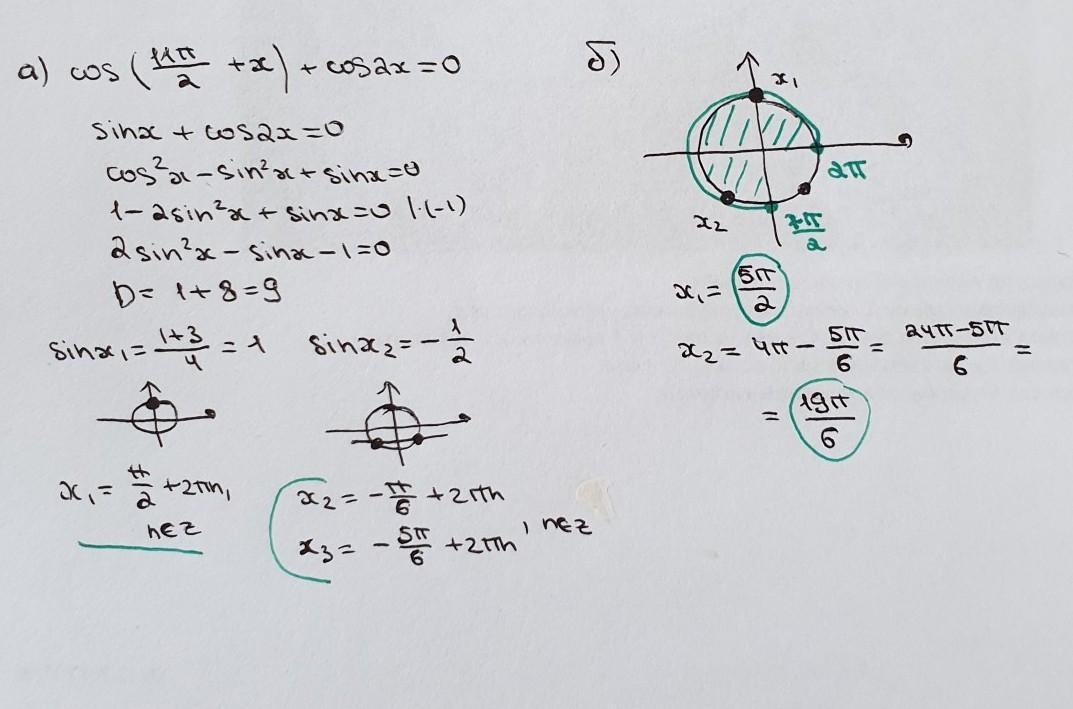 а) cos (11π/2 + x) + cos2x = 0
sinx + cos2x = 0
cos²x - sin²x + sinx = 0
1 - 2sin²x + sinx = 0 |·(-1)
2sin²x - sinx - 1 = 0
D = 1 + 8 = 9
sinx₁ = (1+3)/4 = 1 sinx₂ = -1/2
x₁ = π/2 + 2πn, n∈Z
x₂ = -π/6 + 2πn
x₃ = -5π/6 + 2πn, n∈Z
б)
x₁
2π
x₂ 7π/2
x₁ = 5π/2
x₂ = 4π - 5π/6 = (24π-5π)/6 =
= 19π/6